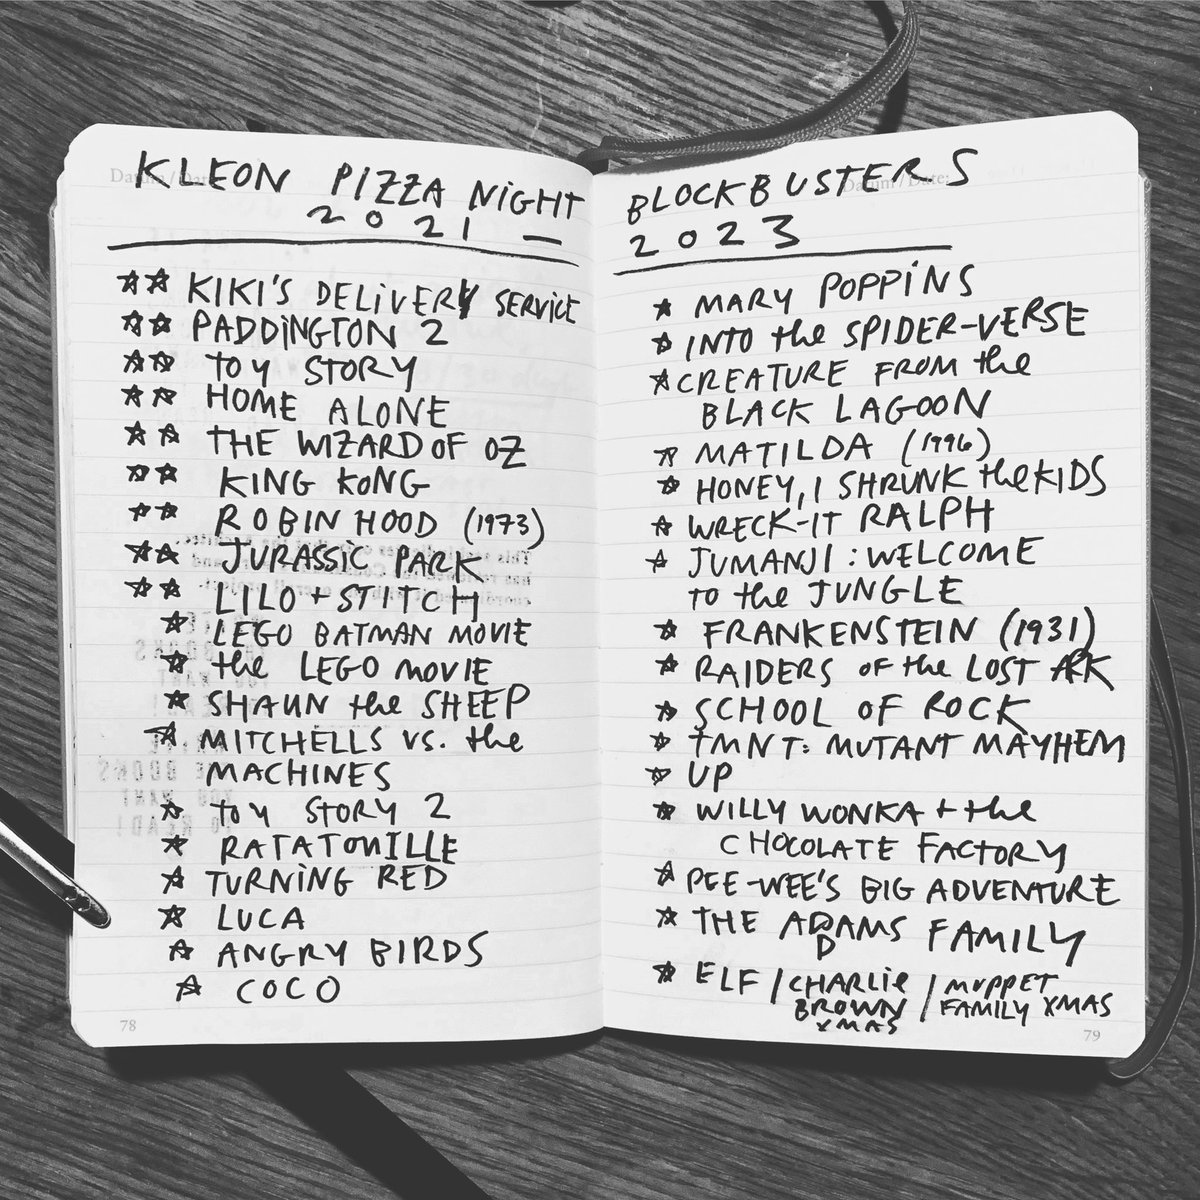 KLEON PIZZA NIGHT
2021 —
★★ KIKI'S DELIVERY SERVICE
★★ PADDINGTON 2
★★ TOY STORY
★★ HOME ALONE
★★ THE WIZARD OF OZ
★★ KING KONG
★★ ROBIN HOOD (1973)
★★ JURASSIC PARK
★★ LILO + STITCH
★ LEGO BATMAN MOVIE
★ the LEGO MOVIE
★ SHAUN the SHEEP
★ MITCHELLS vs. the
MACHINES
★ TOY STORY 2
★ RATATOUILLE
★ TURNING RED
★ LUCA
★ ANGRY BIRDS
★ COCO
78
BLOCKBUSTERS
2023
★ MARY POPPINS
★ INTO the SPIDER-VERSE
★ CREATURE FROM the
BLACK LAGOON
★ MATILDA (1996)
★ HONEY, I SHRUNK the KIDS
★ WRECK-IT RALPH
★ JUMANJI: WELCOME
TO the JUNGLE
★ FRANKENSTEIN (1931)
★ RAIDERS OF the LOST ARK
★ SCHOOL OF ROCK
★ TMNT: MUTANT MAYHEM
★ UP
★ WILLY WONKA + the
CHOCOLATE FACTORY
★ PEE-WEE'S BIG ADVENTURE
★ THE ADDAMS FAMILY
★ ELF / CHARLIE BROWN XMAS / MUPPET FAMILY XMAS
79